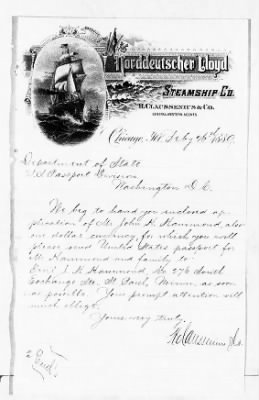 Norddeutscher Lloyd
STEAMSHIP CO.
H. CLAUSSENIUS & CO.
GENERAL WESTERN AGENTS.
Chicago, Ill. July 26th 1889
Department of State
U.S. Passport Division
Washington D.C.
We beg to hand you inclosed ap-
plication of Mr John K. Hammond, also
one dollar currency, for which you will
please send United States passport for
Mr Hammond and family to
J. K. Hammond, No 276 South
Exchange Str. St. Paul, Minn. as soon
as possible. Your prompt attention will
much oblige.
Yours very truly,
H. Claussenius & Co.
2 Encl.